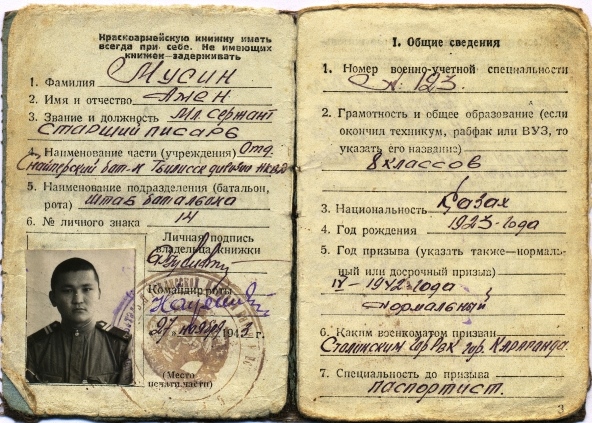 Красноармейскую книжку иметь
всегда при себе. Не имеющих
книжек—задерживать
1. Фамилия Мусин
2. Имя и отчество Ажен
3. Звание и должность Мл. сержант
старший писарь
4. Наименование части (учреждения) Отд.
Снайперский бат-н Тбилисск дивизии НКВД
5. Наименование подразделения (батальон,
рота) Штаб батальона
6. № личного знака 14
Личная подпись
владельца книжки
Командир роты
27 ноября 1943
(Место
печати части)
I. Общие сведения
1. Номер военно-учетной специальности
№ 123.
2. Грамотность и общее образование (если
окончил техникум, рабфак или ВУЗ, то
указать его название)
8 классов
3. Национальность Казах
4. Год рождения 1923 года
5. Год призыва (указать также—нормаль-
ный или досрочный призыв)
1942 года
нормальный
6. Каким военкоматом призван
Сталинским гор. Караганда.
7. Специальность до призыва
паспортист.
3